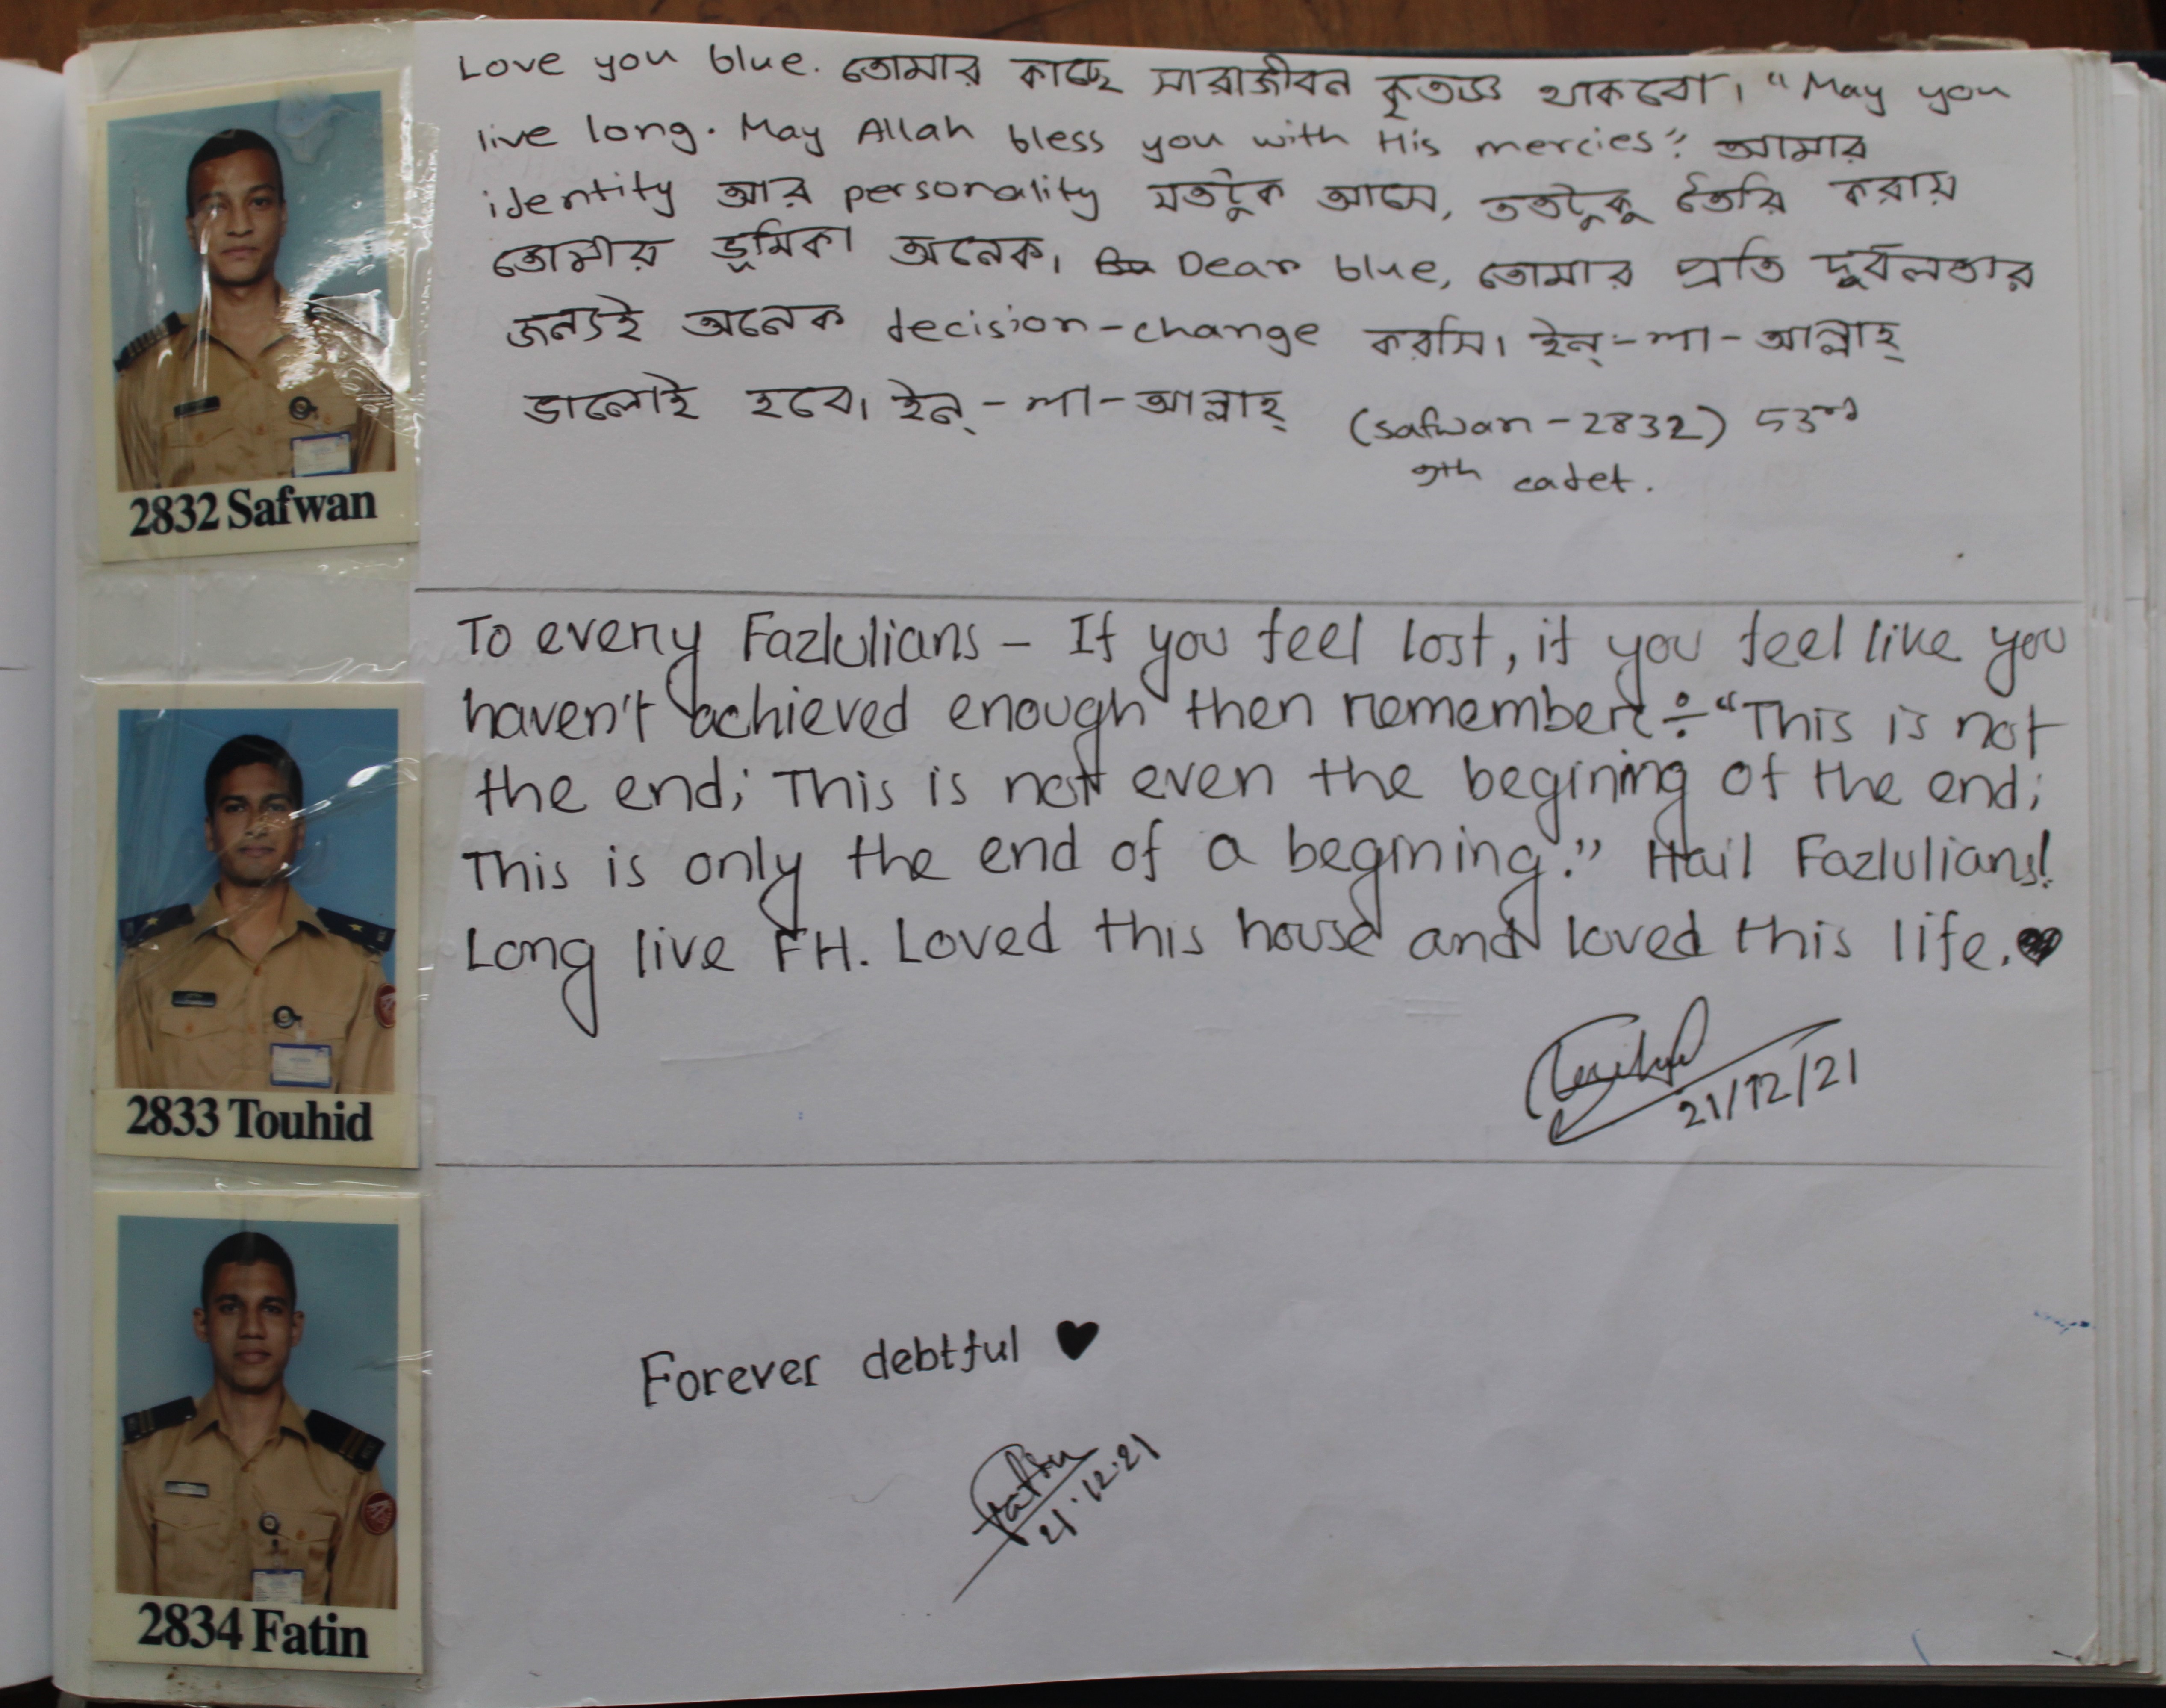 Love you blue. তোমার কাছে সারাজীবন কৃতজ্ঞ থাকবো। "May you
live long. May Allah bless you with His mercies". আমার
identity আর personality যতটুক আসে, ততটুকু তৈরি করায়
তোমার ভূমিকা অনেক। Dear blue, তোমার প্রতি দুর্বলতার
জন্যই অনেক decision-change করসি। ইন্-শা-আল্লাহ্
ভালোই হবে। ইন্-শা-আল্লাহ্ (Safwan-2832) 53rd
cadet.
2832 Safwan
To every Fazlulians - If you feel lost, if you feel like you
haven't achieved enough then remember ÷ "This is not
the end; This is not even the begining of the end;
This is only the end of a begining." Hail Fazlulians!
Long live FH. Loved this house and loved this life. ♥
Touhid
21/12/21
2833 Touhid
Forever debtful ♥
Fatin
21.12.21
2834 Fatin